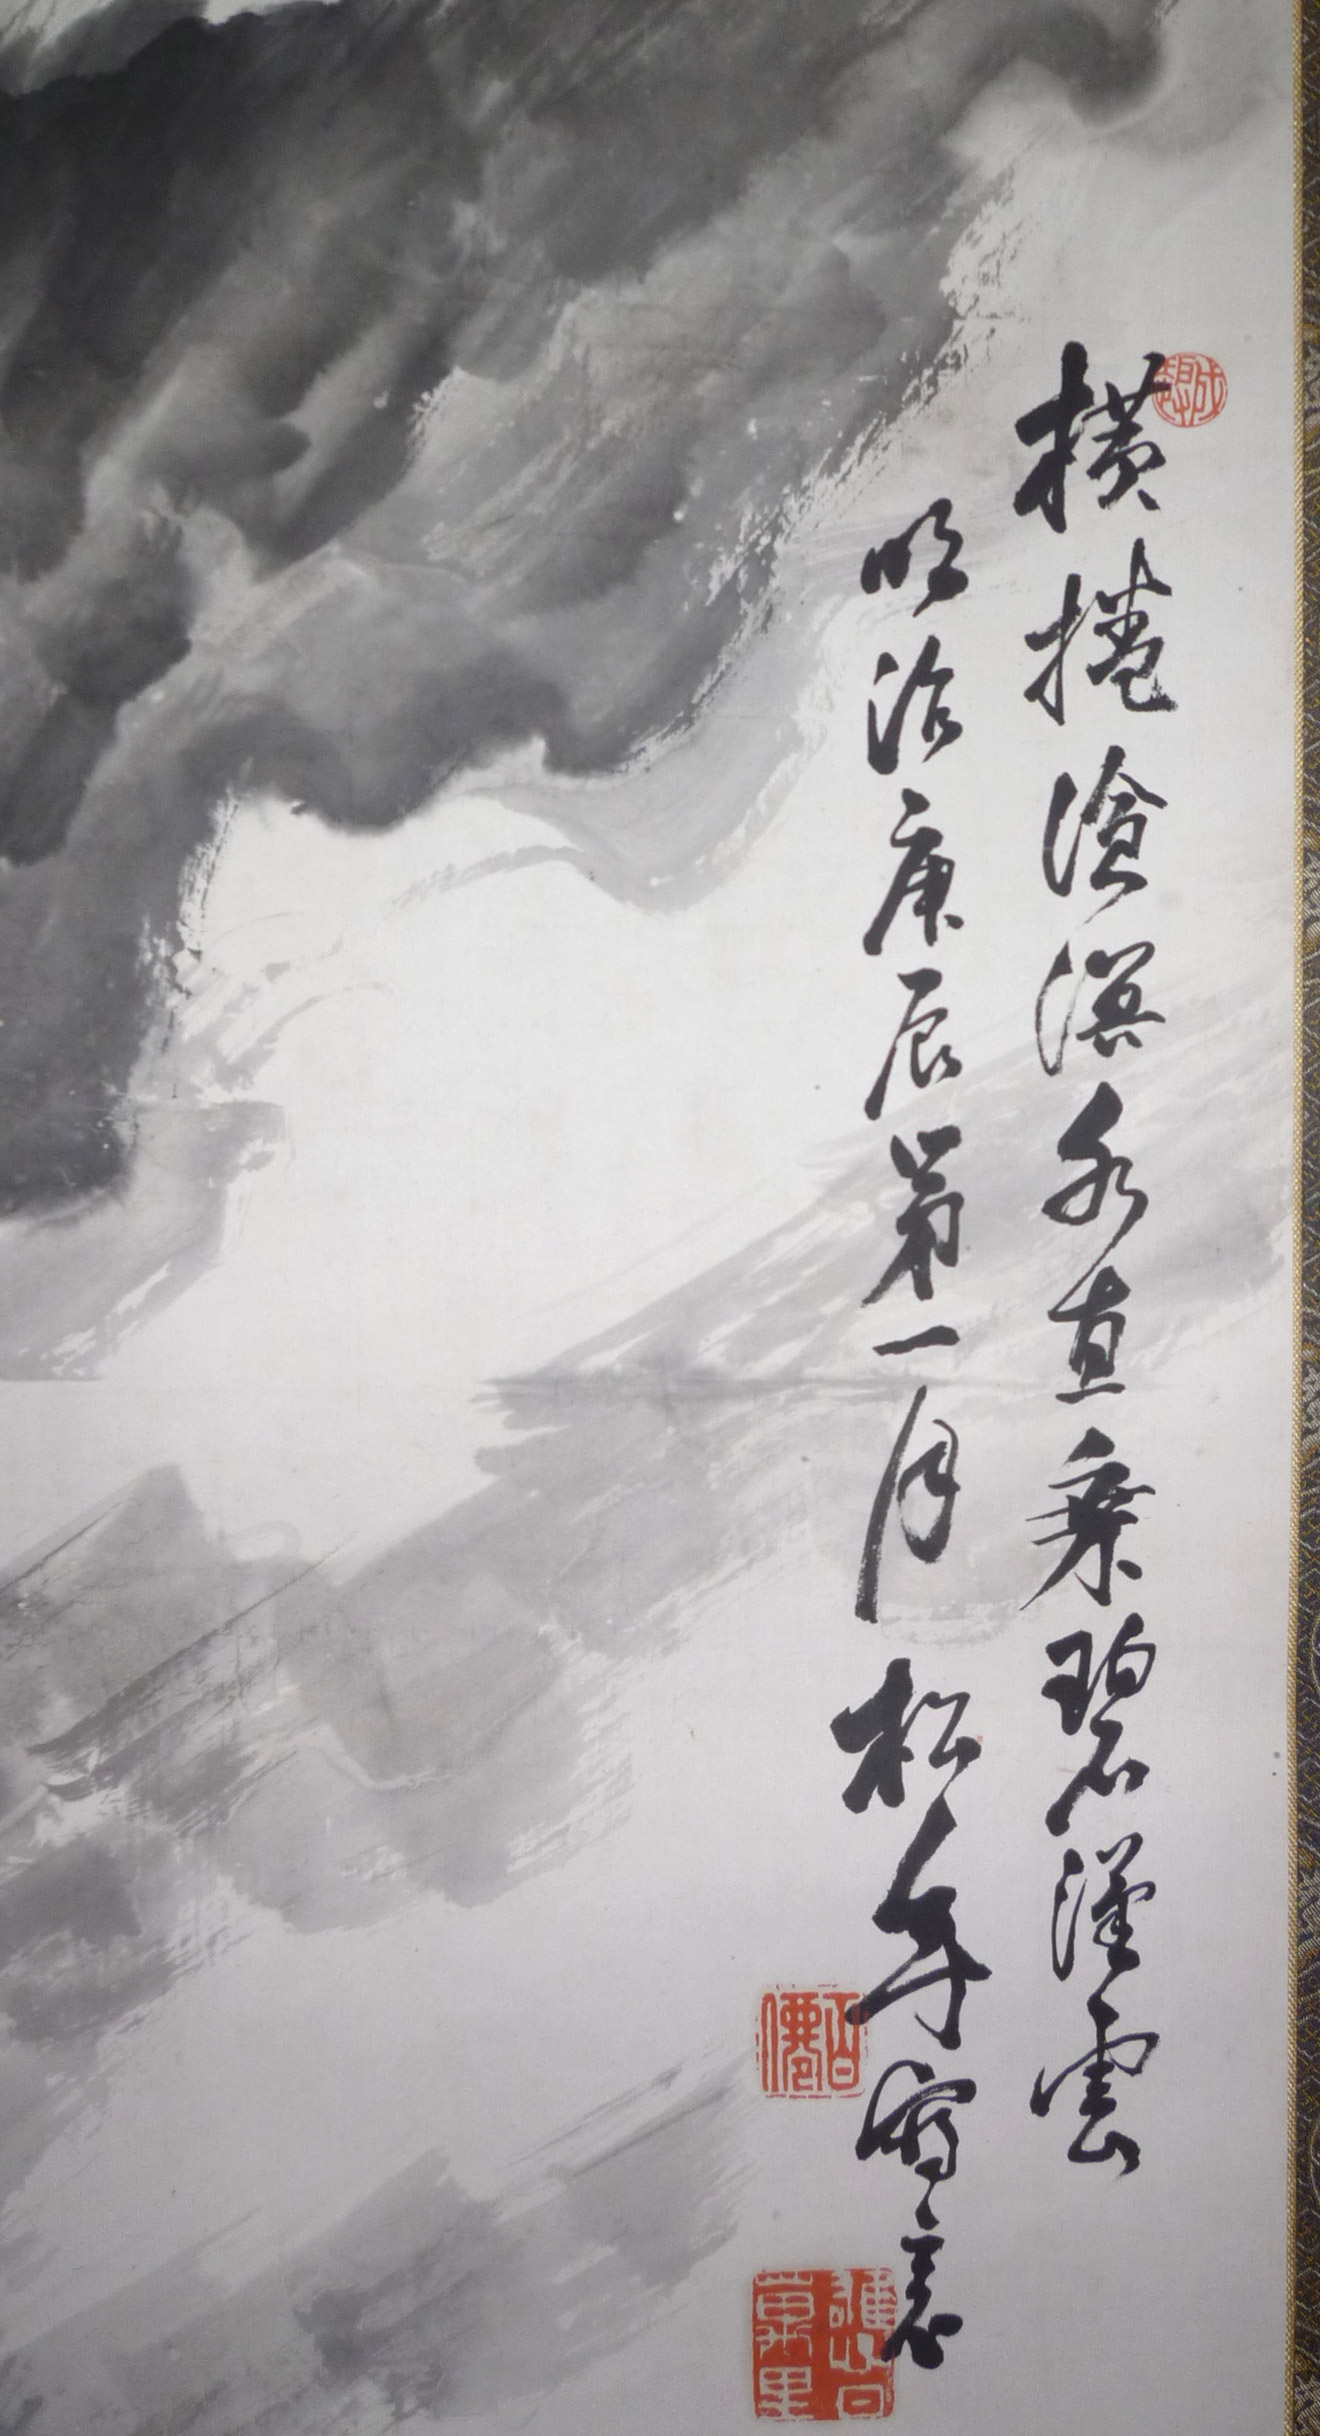 横捲滄溟水直乗碧漢雲
明治庚辰第一月松年寫意